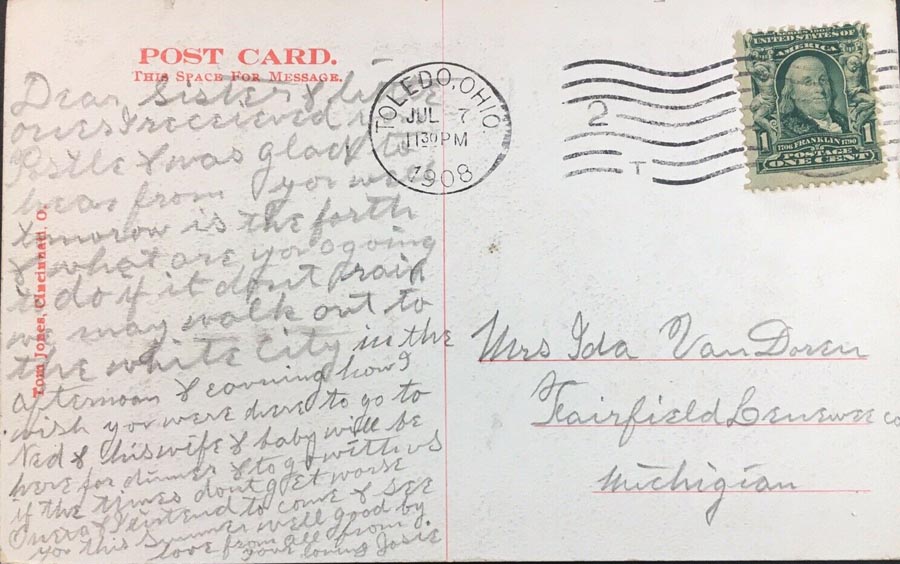 POST CARD.
THIS SPACE FOR MESSAGE.
Dear Sister & little
ones I received your
Postle & was glad to
hear from you well
tomorow is the forth
& what are you going
to do if it dont rain
we may walk out to
the white City in the
afternoon & eavning how I
wish you were here to go to
Ned & his wife & baby will be
here for dinner & to go with us
if the times dont get worse
& I intend to come & see
you this Summer well good by
love from all from
your loving Josie
Tom Jones, Cincinnati, O.
TOLEDO, OHIO.
JUL 7
1130 PM
1908
2
T
SERIES 1902
UNITED STATES OF
AMERICA
1 1
1706 FRANKLIN 1790
POSTAGE
ONE CENT
Mrs Ida Van Doren
Fairfield Lenewee co
Michigian